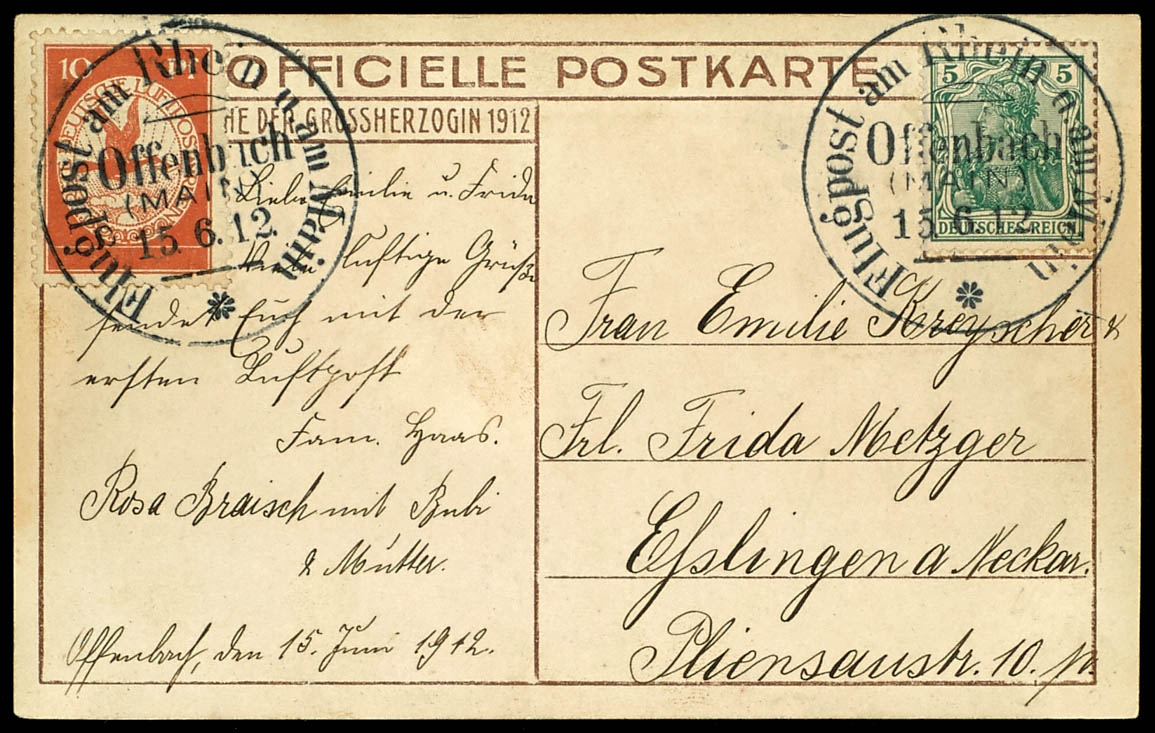 OFFICIELLE POSTKARTE
HE DER GROSSHERZOGIN 1912
10 Pf
DEUTSCHE LUFTPOST
Flugpost am Rhein u. am Main
Offenbach
(MAIN)
15.6.12
5 5
DEUTSCHES REICH
Flugpost am Rhein u. am Main
Offenbach
(MAIN)
15.6.12
Liebe Emilie u. Frida
Viele luftige Grüße
sendet Euch mit der
ersten Luftpost
Fam. Haas.
Rosa Braisch mit Bubi
& Mutter.
Offenbach, den 15. Juni 1912.
Frau Emilie &
Frl. Frida Metzger
Esslingen a Neckar.
Pliensaustr. 10.